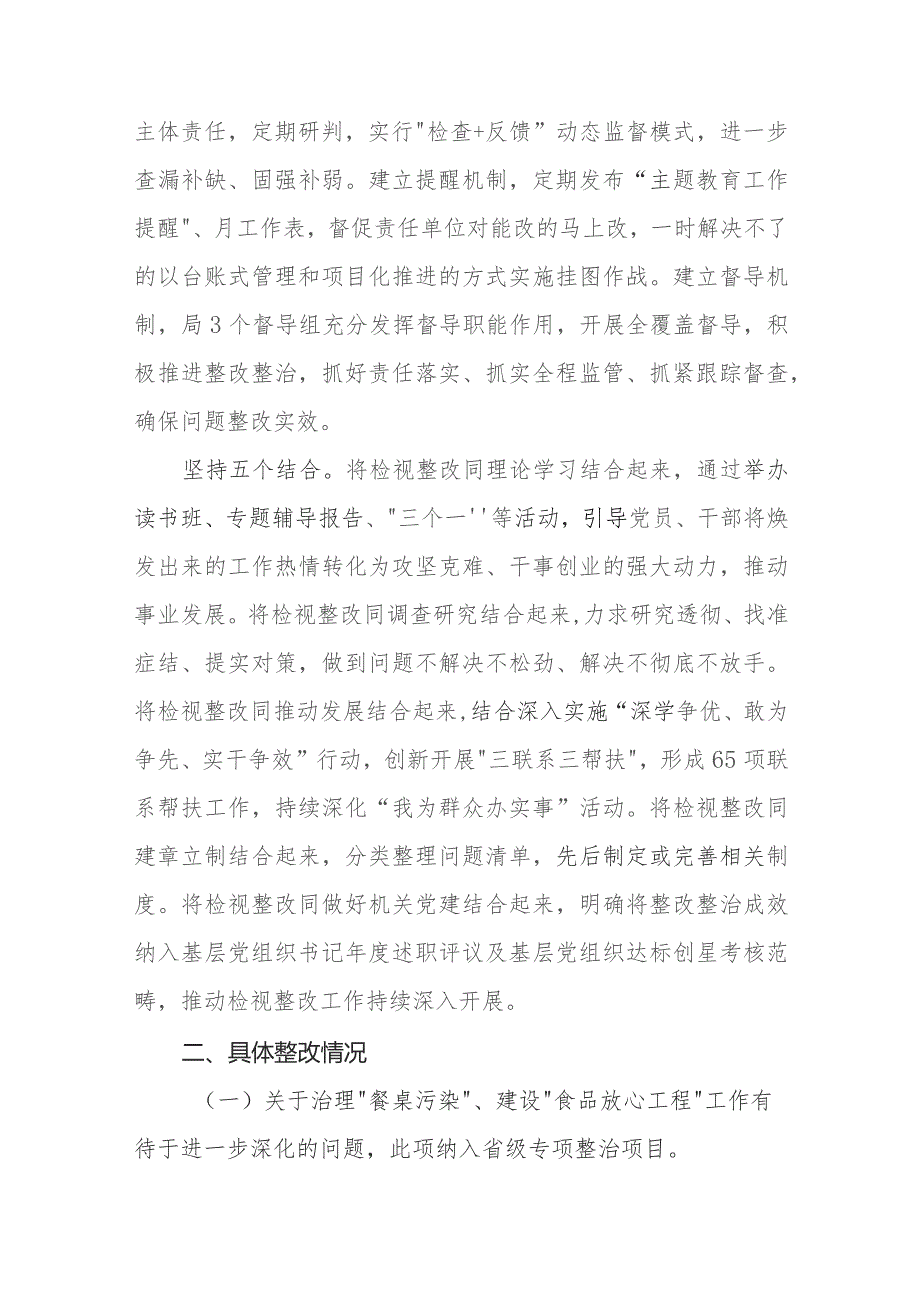 主体责任，定期研判，实行"检查+反馈”动态监督模式，进一步
查漏补缺、固强补弱。建立提醒机制，定期发布“主题教育工作
提醒"、月工作表，督促责任单位对能改的马上改，一时解决不了
的以台账式管理和项目化推进的方式实施挂图作战。建立督导机
制，局3个督导组充分发挥督导职能作用，开展全覆盖督导，积
极推进整改整治，抓好责任落实、抓实全程监管、抓紧跟踪督查，
确保问题整改实效。
坚持五个结合。将检视整改同理论学习结合起来，通过举办
读书班、专题辅导报告、"三个一''等活动，引导党员、干部将焕
发出来的工作热情转化为攻坚克难、干事创业的强大动力，推动
事业发展。将检视整改同调查研究结合起来,力求研究透彻、找准
症结、提实对策，做到问题不解决不松劲、解决不彻底不放手。
将检视整改同推动发展结合起来,结合深入实施“深学争优、敢为
争先、实干争效”行动，创新开展"三联系三帮扶"，形成65项联
系帮扶工作，持续深化“我为群众办实事”活动。将检视整改同
建章立制结合起来，分类整理问题清单，先后制定或完善相关制
度。将检视整改同做好机关党建结合起来，明确将整改整治成效
纳入基层党组织书记年度述职评议及基层党组织达标创星考核范
畴，推动检视整改工作持续深入开展。
二、具体整改情况
（一）关于治理"餐桌污染"、建设"食品放心工程"工作有
待于进一步深化的问题，此项纳入省级专项整治项目。